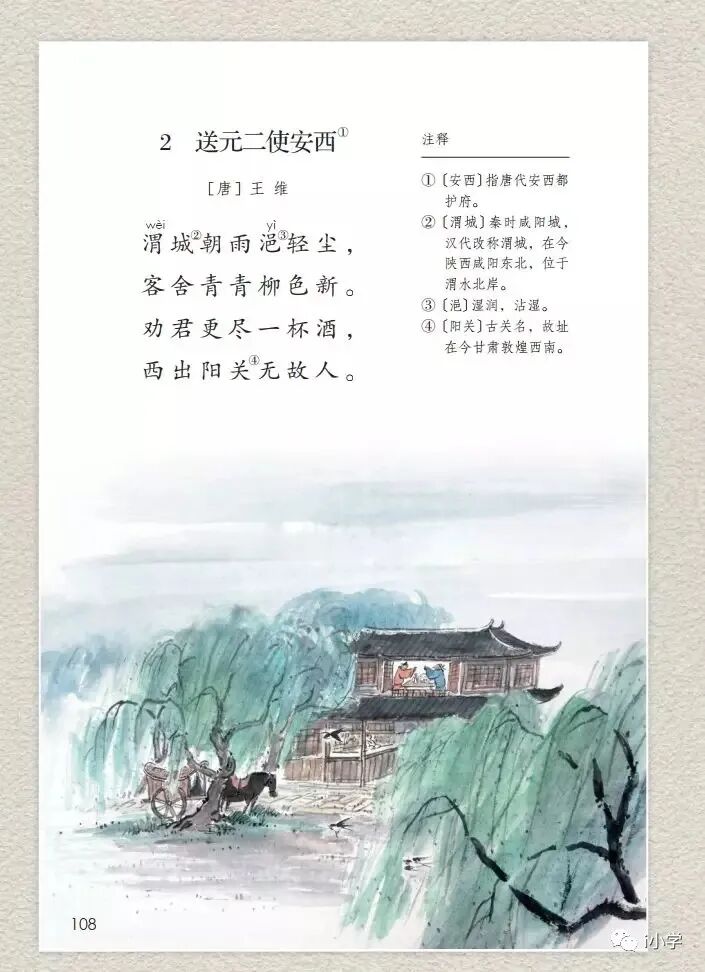 2 送元二使安西①
[唐] 王 维
wèi yì
渭城②朝雨浥③轻尘，
客舍青青柳色新。
劝君更尽一杯酒，
西出阳关④无故人。
注释
①〔安西〕指唐代安西都
护府。
②〔渭城〕秦时咸阳城，
汉代改称渭城，在今
陕西咸阳东北，位于
渭水北岸。
③〔浥〕湿润，沾湿。
④〔阳关〕古关名，故址
在今甘肃敦煌西南。
108
i小学